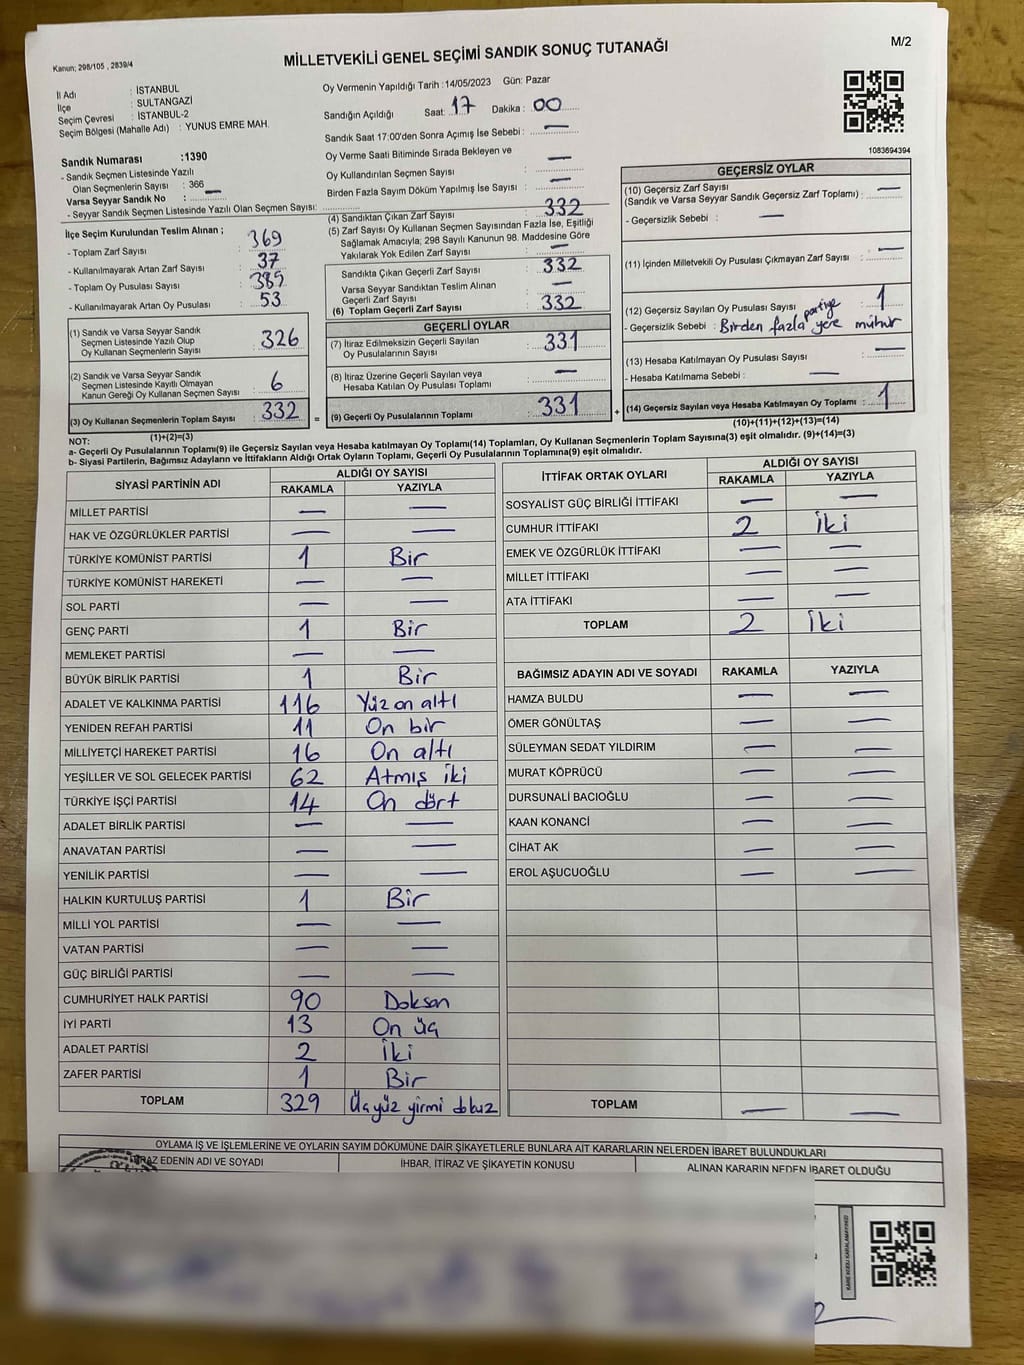 Kanun; 298/105 , 2839/4
MİLLETVEKİLİ GENEL SEÇİMİ SANDIK SONUÇ TUTANAĞI
M/2
İl Adı : İSTANBUL
İlçe : SULTANGAZİ
Seçim Çevresi : İSTANBUL-2
Seçim Bölgesi (Mahalle Adı) : YUNUS EMRE MAH.
Oy Vermenin Yapıldığı Tarih : 14/05/2023 Gün: Pazar
Sandığın Açıldığı Saat: 17 Dakika : 00
Sandık Saat 17:00'den Sonra Açımış İse Sebebi : —
1083694394
Sandık Numarası :1390
- Sandık Seçmen Listesinde Yazılı
Olan Seçmenlerin Sayısı : 366
Varsa Seyyar Sandık No : —
- Seyyar Sandık Seçmen Listesinde Yazılı Olan Seçmen Sayısı:
Oy Verme Saati Bitiminde Sırada Bekleyen ve
Oy Kullandırılan Seçmen Sayısı : —
Birden Fazla Sayım Döküm Yapılmış İse Sayısı : —
İlçe Seçim Kurulundan Teslim Alınan ;
- Toplam Zarf Sayısı : 369
- Kullanılmayarak Artan Zarf Sayısı : 37
- Toplam Oy Pusulası Sayısı : 385
- Kullanılmayarak Artan Oy Pusulası : 53
(4) Sandıktan Çıkan Zarf Sayısı : 332
(5) Zarf Sayısı Oy Kullanan Seçmen Sayısından Fazla İse, Eşitliği
Sağlamak Amacıyla; 298 Sayılı Kanunun 98. Maddesine Göre
Yakılarak Yok Edilen Zarf Sayısı : —
Sandıkta Çıkan Geçerli Zarf Sayısı : 332
Varsa Seyyar Sandıktan Teslim Alınan
Geçerli Zarf Sayısı : —
(6) Toplam Geçerli Zarf Sayısı : 332
(1) Sandık ve Varsa Seyyar Sandık
Seçmen Listesinde Yazılı Olup
Oy Kullanan Seçmenlerin Sayısı : 326
(2) Sandık ve Varsa Seyyar Sandık
Seçmen Listesinde Kayıtlı Olmayan
Kanun Gereği Oy Kullanan Seçmen Sayısı : 6
(3) Oy Kullanan Seçmenlerin Toplam Sayısı : 332
(1)+(2)=(3)
GEÇERLİ OYLAR
(7) İtiraz Edilmeksizin Geçerli Sayılan
Oy Pusulalarının Sayısı : 331
(8) İtiraz Üzerine Geçerli Sayılan veya
Hesaba Katılan Oy Pusulası Toplamı : —
(9) Geçerli Oy Pusulalarının Toplamı : 331
GEÇERSİZ OYLAR
(10) Geçersiz Zarf Sayısı
(Sandık ve Varsa Seyyar Sandık Geçersiz Zarf Toplamı) : —
- Geçersizlik Sebebi : —
(11) İçinden Milletvekili Oy Pusulası Çıkmayan Zarf Sayısı : —
(12) Geçersiz Sayılan Oy Pusulası Sayısı : 1
- Geçersizlik Sebebi : Birden fazla partiye yere mühür
(13) Hesaba Katılmayan Oy Pusulası Sayısı : —
- Hesaba Katılmama Sebebi : —
(14) Geçersiz Sayılan veya Hesaba Katılmayan Oy Toplamı : 1
(10)+(11)+(12)+(13)=(14)
NOT:
a- Geçerli Oy Pusulalarının Toplamı(9) ile Geçersiz Sayılan veya Hesaba katılmayan Oy Toplamı(14) Toplamları, Oy Kullanan Seçmenlerin Toplam Sayısına(3) eşit olmalıdır. (9)+(14)=(3)
b- Siyasi Partilerin, Bağımsız Adayların ve İttifakların Aldığı Ortak Oyların Toplamı, Geçerli Oy Pusulalarının Toplamına(9) eşit olmalıdır.
SİYASİ PARTİNİN ADI ALDIĞI OY SAYISI
RAKAMLA YAZIYLA
MİLLET PARTİSİ — —
HAK VE ÖZGÜRLÜKLER PARTİSİ — —
TÜRKİYE KOMÜNİST PARTİSİ 1 Bir
TÜRKİYE KOMÜNİST HAREKETİ — —
SOL PARTİ — —
GENÇ PARTİ 1 Bir
MEMLEKET PARTİSİ — —
BÜYÜK BİRLİK PARTİSİ 1 Bir
ADALET VE KALKINMA PARTİSİ 116 Yüz on altı
YENİDEN REFAH PARTİSİ 11 On bir
MİLLİYETÇİ HAREKET PARTİSİ 16 On altı
YEŞİLLER VE SOL GELECEK PARTİSİ 62 Atmış iki
TÜRKİYE İŞÇİ PARTİSİ 14 On dört
ADALET BİRLİK PARTİSİ — —
ANAVATAN PARTİSİ — —
YENİLİK PARTİSİ — —
HALKIN KURTULUŞ PARTİSİ 1 Bir
MİLLİ YOL PARTİSİ — —
VATAN PARTİSİ — —
GÜÇ BİRLİĞİ PARTİSİ — —
CUMHURİYET HALK PARTİSİ 90 Doksan
İYİ PARTİ 13 On üç
ADALET PARTİSİ 2 İki
ZAFER PARTİSİ 1 Bir
TOPLAM 329 Üçyüz yirmi dokuz
İTTİFAK ORTAK OYLARI ALDIĞI OY SAYISI
RAKAMLA YAZIYLA
SOSYALİST GÜÇ BİRLİĞİ İTTİFAKI — —
CUMHUR İTTİFAKI 2 İki
EMEK VE ÖZGÜRLÜK İTTİFAKI — —
MİLLET İTTİFAKI — —
ATA İTTİFAKI — —
TOPLAM 2 İki
BAĞIMSIZ ADAYIN ADI VE SOYADI RAKAMLA YAZIYLA
HAMZA BULDU — —
ÖMER GÖNÜLTAŞ — —
SÜLEYMAN SEDAT YILDIRIM — —
MURAT KÖPRÜCÜ — —
DURSUNALİ BACIOĞLU — —
KAAN KONANCİ — —
CİHAT AK — —
EROL AŞUCUOĞLU — —
TOPLAM — —
OYLAMA İŞ VE İŞLEMLERİNE VE OYLARIN SAYIM DÖKÜMÜNE DAİR ŞİKAYETLERLE BUNLARA AİT KARARLARIN NELERDEN İBARET BULUNDUKLARI
İTİRAZ EDENİN ADI VE SOYADI İHBAR, İTİRAZ VE ŞİKAYETİN KONUSU ALINAN KARARIN NEDEN İBARET OLDUĞU